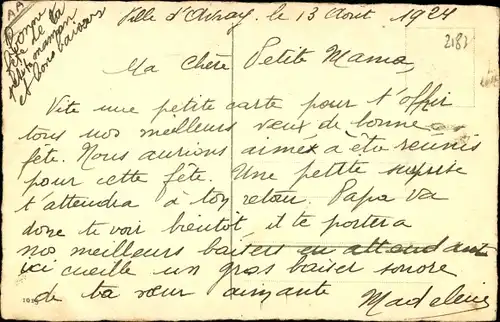 Ville d'Avray. le 13 Aout 1924
2183
AA
Bonne
fête de la
petite maman
et bons baisers
Ma Chère Petite Mama,
Vite une petite carte pour t'offrir
tous nos meilleurs veux de bonne
fête. Nous aurions aimé a être réunis
pour cette fête. Une petite surprise
t'attendra à ton retour. Papa va
donc te voir bientot, il te portera
nos meilleurs baisers en attendant
ici cueille un gros baiser sonore
de ta sœur aimante Madeleine